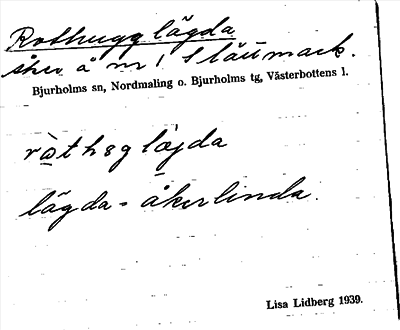 Rothugglägda
åker å nr 1 Slåttmark.
Bjurholms sn, Nordmaling o. Bjurholms tg, Västerbottens l.
lägda = åkerlinda.
Lisa Lidberg 1939.